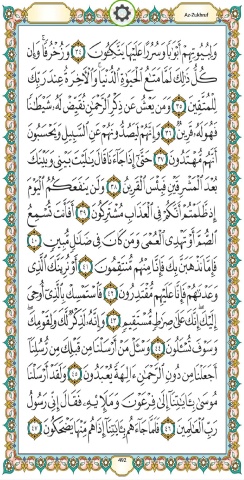 Az-Zukhruf
وَلِبُيُوتِهِمْ أَبْوَٰبًا وَسُرُرًا عَلَيْهَا يَتَّكِـُٔونَ ٣٤ وَزُخْرُفًا ۚ وَإِن
كُلُّ ذَٰلِكَ لَمَّا مَتَـٰعُ ٱلْحَيَوٰةِ ٱلدُّنْيَا ۚ وَٱلْـَٔاخِرَةُ عِندَ رَبِّكَ
لِلْمُتَّقِينَ ٣٥ وَمَن يَعْشُ عَن ذِكْرِ ٱلرَّحْمَـٰنِ نُقَيِّضْ لَهُۥ شَيْطَـٰنًا
فَهُوَ لَهُۥ قَرِينٌ ٣٦ وَإِنَّهُمْ لَيَصُدُّونَهُمْ عَنِ ٱلسَّبِيلِ وَيَحْسَبُونَ
أَنَّهُم مُّهْتَدُونَ ٣٧ حَتَّىٰٓ إِذَا جَآءَنَا قَالَ يَـٰلَيْتَ بَيْنِى وَبَيْنَكَ
بُعْدَ ٱلْمَشْرِقَيْنِ فَبِئْسَ ٱلْقَرِينُ ٣٨ وَلَن يَنفَعَكُمُ ٱلْيَوْمَ
إِذ ظَّلَمْتُمْ أَنَّكُمْ فِى ٱلْعَذَابِ مُشْتَرِكُونَ ٣٩ أَفَأَنتَ تُسْمِعُ
ٱلصُّمَّ أَوْ تَهْدِى ٱلْعُمْىَ وَمَن كَانَ فِى ضَلَـٰلٍ مُّبِينٍ ٤٠
فَإِمَّا نَذْهَبَنَّ بِكَ فَإِنَّا مِنْهُم مُّنتَقِمُونَ ٤١ أَوْ نُرِيَنَّكَ ٱلَّذِى
وَعَدْنَـٰهُمْ فَإِنَّا عَلَيْهِم مُّقْتَدِرُونَ ٤٢ فَٱسْتَمْسِكْ بِٱلَّذِىٓ أُوحِىَ
إِلَيْكَ ۖ إِنَّكَ عَلَىٰ صِرَٰطٍ مُّسْتَقِيمٍ ٤٣ وَإِنَّهُۥ لَذِكْرٌ لَّكَ وَلِقَوْمِكَ ۖ
وَسَوْفَ تُسْـَٔلُونَ ٤٤ وَسْـَٔلْ مَنْ أَرْسَلْنَا مِن قَبْلِكَ مِن رُّسُلِنَآ
أَجَعَلْنَا مِن دُونِ ٱلرَّحْمَـٰنِ ءَالِهَةً يُعْبَدُونَ ٤٥ وَلَقَدْ أَرْسَلْنَا
مُوسَىٰ بِـَٔايَـٰتِنَآ إِلَىٰ فِرْعَوْنَ وَمَلَإِي۟هِۦ فَقَالَ إِنِّى رَسُولُ
رَبِّ ٱلْعَـٰلَمِينَ ٤٦ فَلَمَّا جَآءَهُم بِـَٔايَـٰتِنَآ إِذَا هُم مِّنْهَا يَضْحَكُونَ ٤٧
492